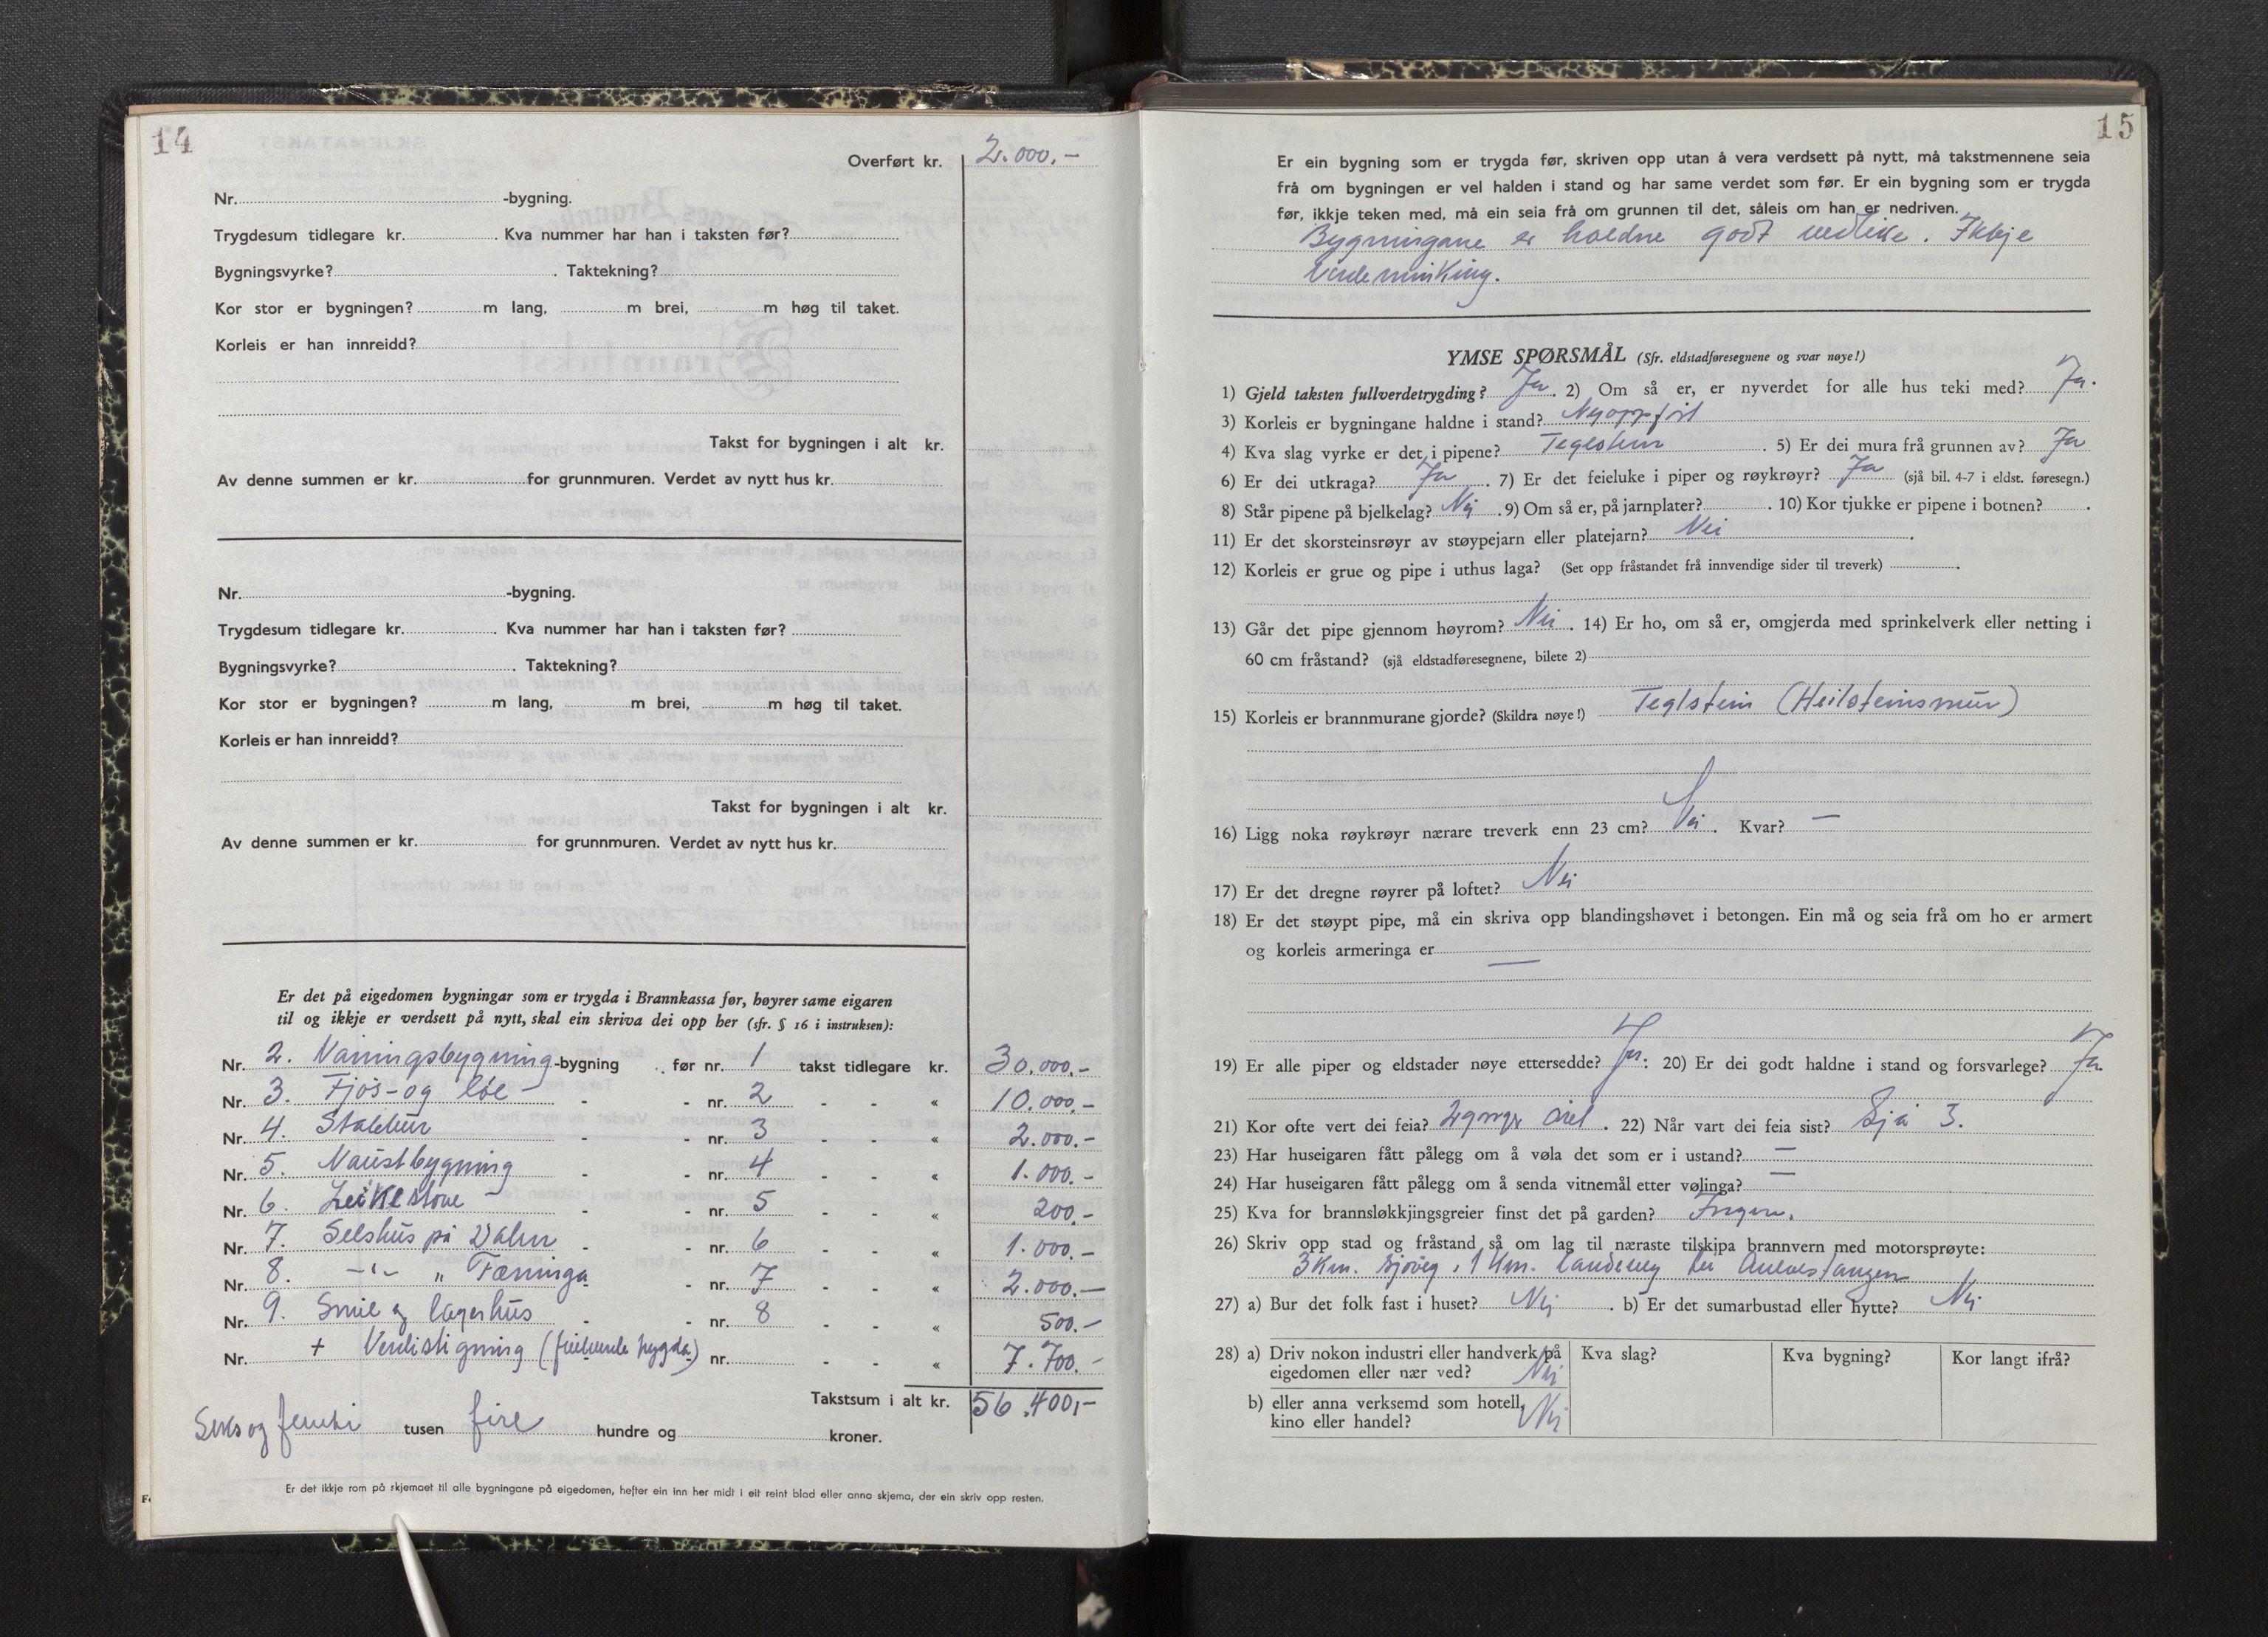 14
Overført kr. 2.000.-
Nr. -bygning.
Trygdesum tidlegare kr. . Kva nummer har han i taksten før?
Bygningsvyrke? . Taktekning?
Kor stor er bygningen? m lang, m brei, m høg til taket.
Korleis er han innreidd?
Takst for bygningen i alt kr.
Av denne summen er kr. for grunnmuren. Verdet av nytt hus kr.
Nr. -bygning.
Trygdesum tidlegare kr. . Kva nummer har han i taksten før?
Bygningsvyrke? . Taktekning?
Kor stor er bygningen? m lang, m brei, m høg til taket.
Korleis er han innreidd?
Takst for bygningen i alt kr.
Av denne summen er kr. for grunnmuren. Verdet av nytt hus kr.
Er det på eigedomen bygningar som er trygda i Brannkassa før, høyrer same eigaren
til og ikkje er verdsett på nytt, skal ein skriva dei opp her (sfr. § 16 i instruksen):
Nr. 2. Våningsbygning -bygning . før nr. 1 takst tidlegare kr. 30.000.-
Nr. 3. Fjøs- og løe - - nr. 2 - - « 10.000.-
Nr. 4. Stabbur - - nr. 3 - - « 2.000.-
Nr. 5. Naustbygning - - nr. 4 - - « 1.000.-
Nr. 6. Leikestove - - nr. 5 - - « 200.-
Nr. 7. Selshus på Dalen - - nr. 6 - - « 1.000.-
Nr. 8. -"- " Færninga - - nr. 7 - - « 2.000.-
Nr. 9. Smie og lagerhus - - nr. 8 - - « 500.-
Nr. + Verdistigning (fullverde trygda) nr. - - « 7.700.-
Takstsum i alt kr. 56.400,-
Seks og femti tusen fire hundre og kroner.
Er det ikkje rom på skjemaet til alle bygningane på eigedomen, hefter ein inn her midt i eit reint blad eller anna skjema, der ein skriv opp resten.
15
Er ein bygning som er trygda før, skriven opp utan å vera verdsett på nytt, må takstmennene seia
frå om bygningen er vel halden i stand og har same verdet som før. Er ein bygning som er trygda
før, ikkje teken med, må ein seia frå om grunnen til det, såleis om han er nedriven.
Bygningane er haldne godt vedlike. Ikkje
verdeminking.
YMSE SPØRSMÅL (Sfr. eldstadføresegnene og svar nøye!)
1) Gjeld taksten fullverdetrygding? Ja . 2) Om så er, er nyverdet for alle hus teki med? Ja.
3) Korleis er bygningane haldne i stand? Nyoppført
4) Kva slag vyrke er det i pipene? Teglstein . 5) Er dei mura frå grunnen av? Ja
6) Er dei utkraga? Ja . 7) Er det feieluke i piper og røykrøyr? Ja (sjå bil. 4-7 i eldst. føresegn.)
8) Står pipene på bjelkelag? Nei . 9) Om så er, på jarnplater? . 10) Kor tjukke er pipene i botnen? .
11) Er det skorsteinsrøyr av støypejarn eller platejarn? Nei .
12) Korleis er grue og pipe i uthus laga? (Set opp fråstandet frå innvendige sider til treverk) .
13) Går det pipe gjennom høyrom? Nei . 14) Er ho, om så er, omgjerda med sprinkelverk eller netting i
60 cm fråstand? (sjå eldstadføresegnene, bilete 2)
15) Korleis er brannmurane gjorde? (Skildra nøye!) Teglstein (Heilsteinsmur)
16) Ligg noka røykrøyr nærare treverk enn 23 cm? Nei . Kvar? —
17) Er det dregne røyrer på loftet? Nei
18) Er det støypt pipe, må ein skriva opp blandingshøvet i betongen. Ein må og seia frå om ho er armert
og korleis armeringa er —
19) Er alle piper og eldstader nøye ettersedde? Ja : 20) Er dei godt haldne i stand og forsvarlege? Ja.
21) Kor ofte vert dei feia? 2 gongr året . 22) Når vart dei feia sist? Sjå 3.
23) Har huseigaren fått pålegg om å vøla det som er i ustand? —
24) Har huseigaren fått pålegg om å senda vitnemål etter vølinga? —
25) Kva for brannsløkkjingsgreier finst det på garden? Ingen.
26) Skriv opp stad og fråstand så om lag til næraste tilskipa brannvern med motorsprøyte:
3 km. sjøveg, 1 km. landeveg til
27) a) Bur det folk fast i huset? Nei . b) Er det sumarbustad eller hytte? Nei
28) a) Driv nokon industri eller handverk på eigedomen eller nær ved? Nei
Kva slag? Kva bygning? Kor langt ifrå?
b) eller anna verksemd som hotell, kino eller handel? Nei